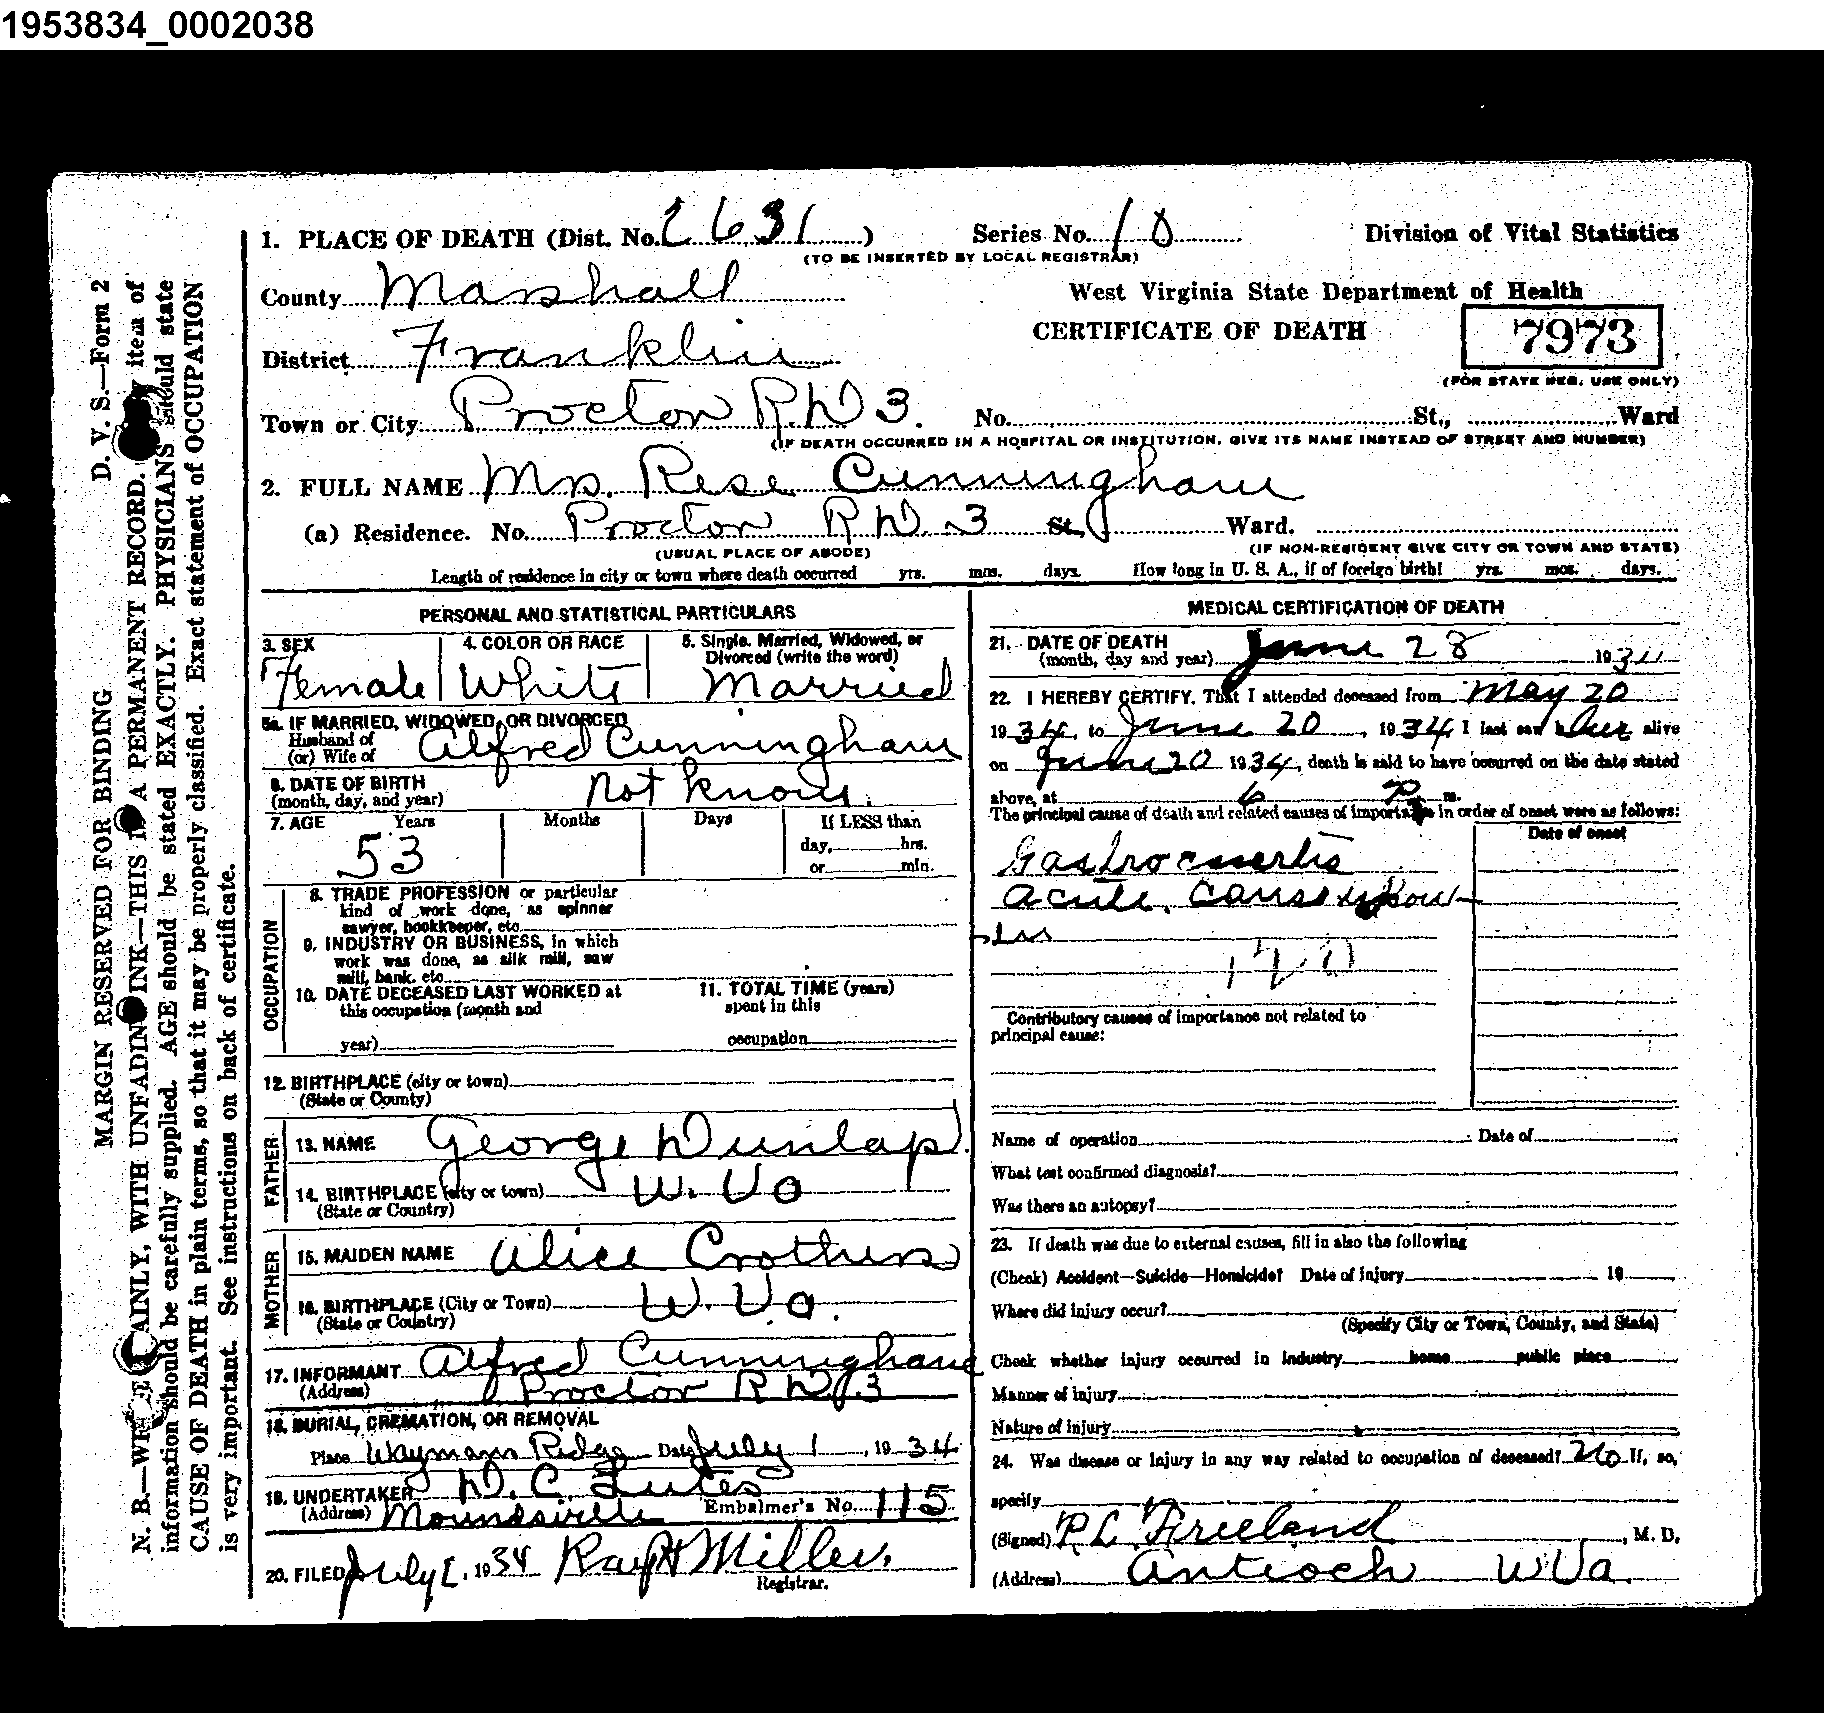 1953834_0002038
1. PLACE OF DEATH (Dist. No. 2631)
Series No. 10
Division of Vital Statistics
(TO BE INSERTED BY LOCAL REGISTRAR)
County Marshall
West Virginia State Department of Health
CERTIFICATE OF DEATH
7973
(FOR STATE REG. USE ONLY)
District Franklin
Town or City Proctor R.D 3.
No. St., Ward
(IF DEATH OCCURRED IN A HOSPITAL OR INSTITUTION, GIVE ITS NAME INSTEAD OF STREET AND NUMBER)
2. FULL NAME Mrs. Rose Cunningham
(a) Residence. No. Proctor R D 3 St. Ward.
(USUAL PLACE OF ABODE) (IF NON-RESIDENT GIVE CITY OR TOWN AND STATE)
Length of residence in city or town where death occurred yrs. mos. days. How long in U. S. A., if of foreign birth? yrs. mos. days.
PERSONAL AND STATISTICAL PARTICULARS
3. SEX
Female
4. COLOR OR RACE
White
5. Single, Married, Widowed, or
Divorced (write the word)
Married
5a. IF MARRIED, WIDOWED, OR DIVORCED
Husband of
(or) Wife of Alfred Cunningham
6. DATE OF BIRTH
(month, day, and year) not known
7. AGE Years Months Days If LESS than
53
day, hrs.
or min.
OCCUPATION
8. TRADE PROFESSION or particular
kind of work done, as spinner
sawyer, bookkeeper, etc.
9. INDUSTRY OR BUSINESS, in which
work was done, as silk mill, saw
mill, bank. etc.
10. DATE DECEASED LAST WORKED at
this occupation (month and
year)
11. TOTAL TIME (years)
spent in this
occupation
12. BIRTHPLACE (city or town)
(State or County)
FATHER
13. NAME George Dunlap
14. BIRTHPLACE (city or town) W. Va
(State or Country)
MOTHER
15. MAIDEN NAME Alice Crothers
16. BIRTHPLACE (City or Town) W. Va.
(State or Country)
17. INFORMANT Alfred Cunningham
(Address) Proctor R D 3
18. BURIAL, CREMATION, OR REMOVAL
Place Waymans Ridge Date July 1, 1934
19. UNDERTAKER D. C. Lutes
(Address) Moundsville Embalmer's No. 115
20. FILED July 1934 Ray Miller.
Registrar.
MEDICAL CERTIFICATION OF DEATH
21. DATE OF DEATH
(month, day and year) June 28 1934
22. I HEREBY CERTIFY. That I attended deceased from May 20
1934, to June 20, 1934, I last saw her alive
on June 20 1934, death is said to have occurred on the date stated
above, at 6 P. m.
The principal cause of death and related causes of importance in order of onset were as follows:
Date of onset
acute.
120
Contributory causes of importance not related to
principal cause:
Name of operation Date of
What test confirmed diagnosis?
Was there an autopsy?
23. If death was due to external causes, fill in also the following
(Check) Accident—Suicide—Homicide? Date of injury 19
Where did injury occur?
(Specify City or Town, County, and State)
Check whether injury occurred in industry home public place
Manner of injury
Nature of injury
24. Was disease or injury in any way related to occupation of deceased? No If, so,
specify
(Signed) P. L. Freeland, M. D.
(Address) Antioch W Va.
D. V. S.—Form 2
MARGIN RESERVED FOR BINDING
N. B.—WRITE PLAINLY, WITH UNFADING INK—THIS IS A PERMANENT RECORD. item of
information should be carefully supplied. AGE should be stated EXACTLY. PHYSICIANS should state
CAUSE OF DEATH in plain terms, so that it may be properly classified. Exact statement of OCCUPATION
is very important. See instructions on back of certificate.